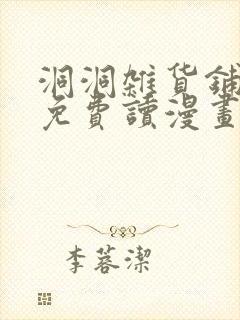 洞洞雜貨鋪
免費讀漫畫
李蓉潔